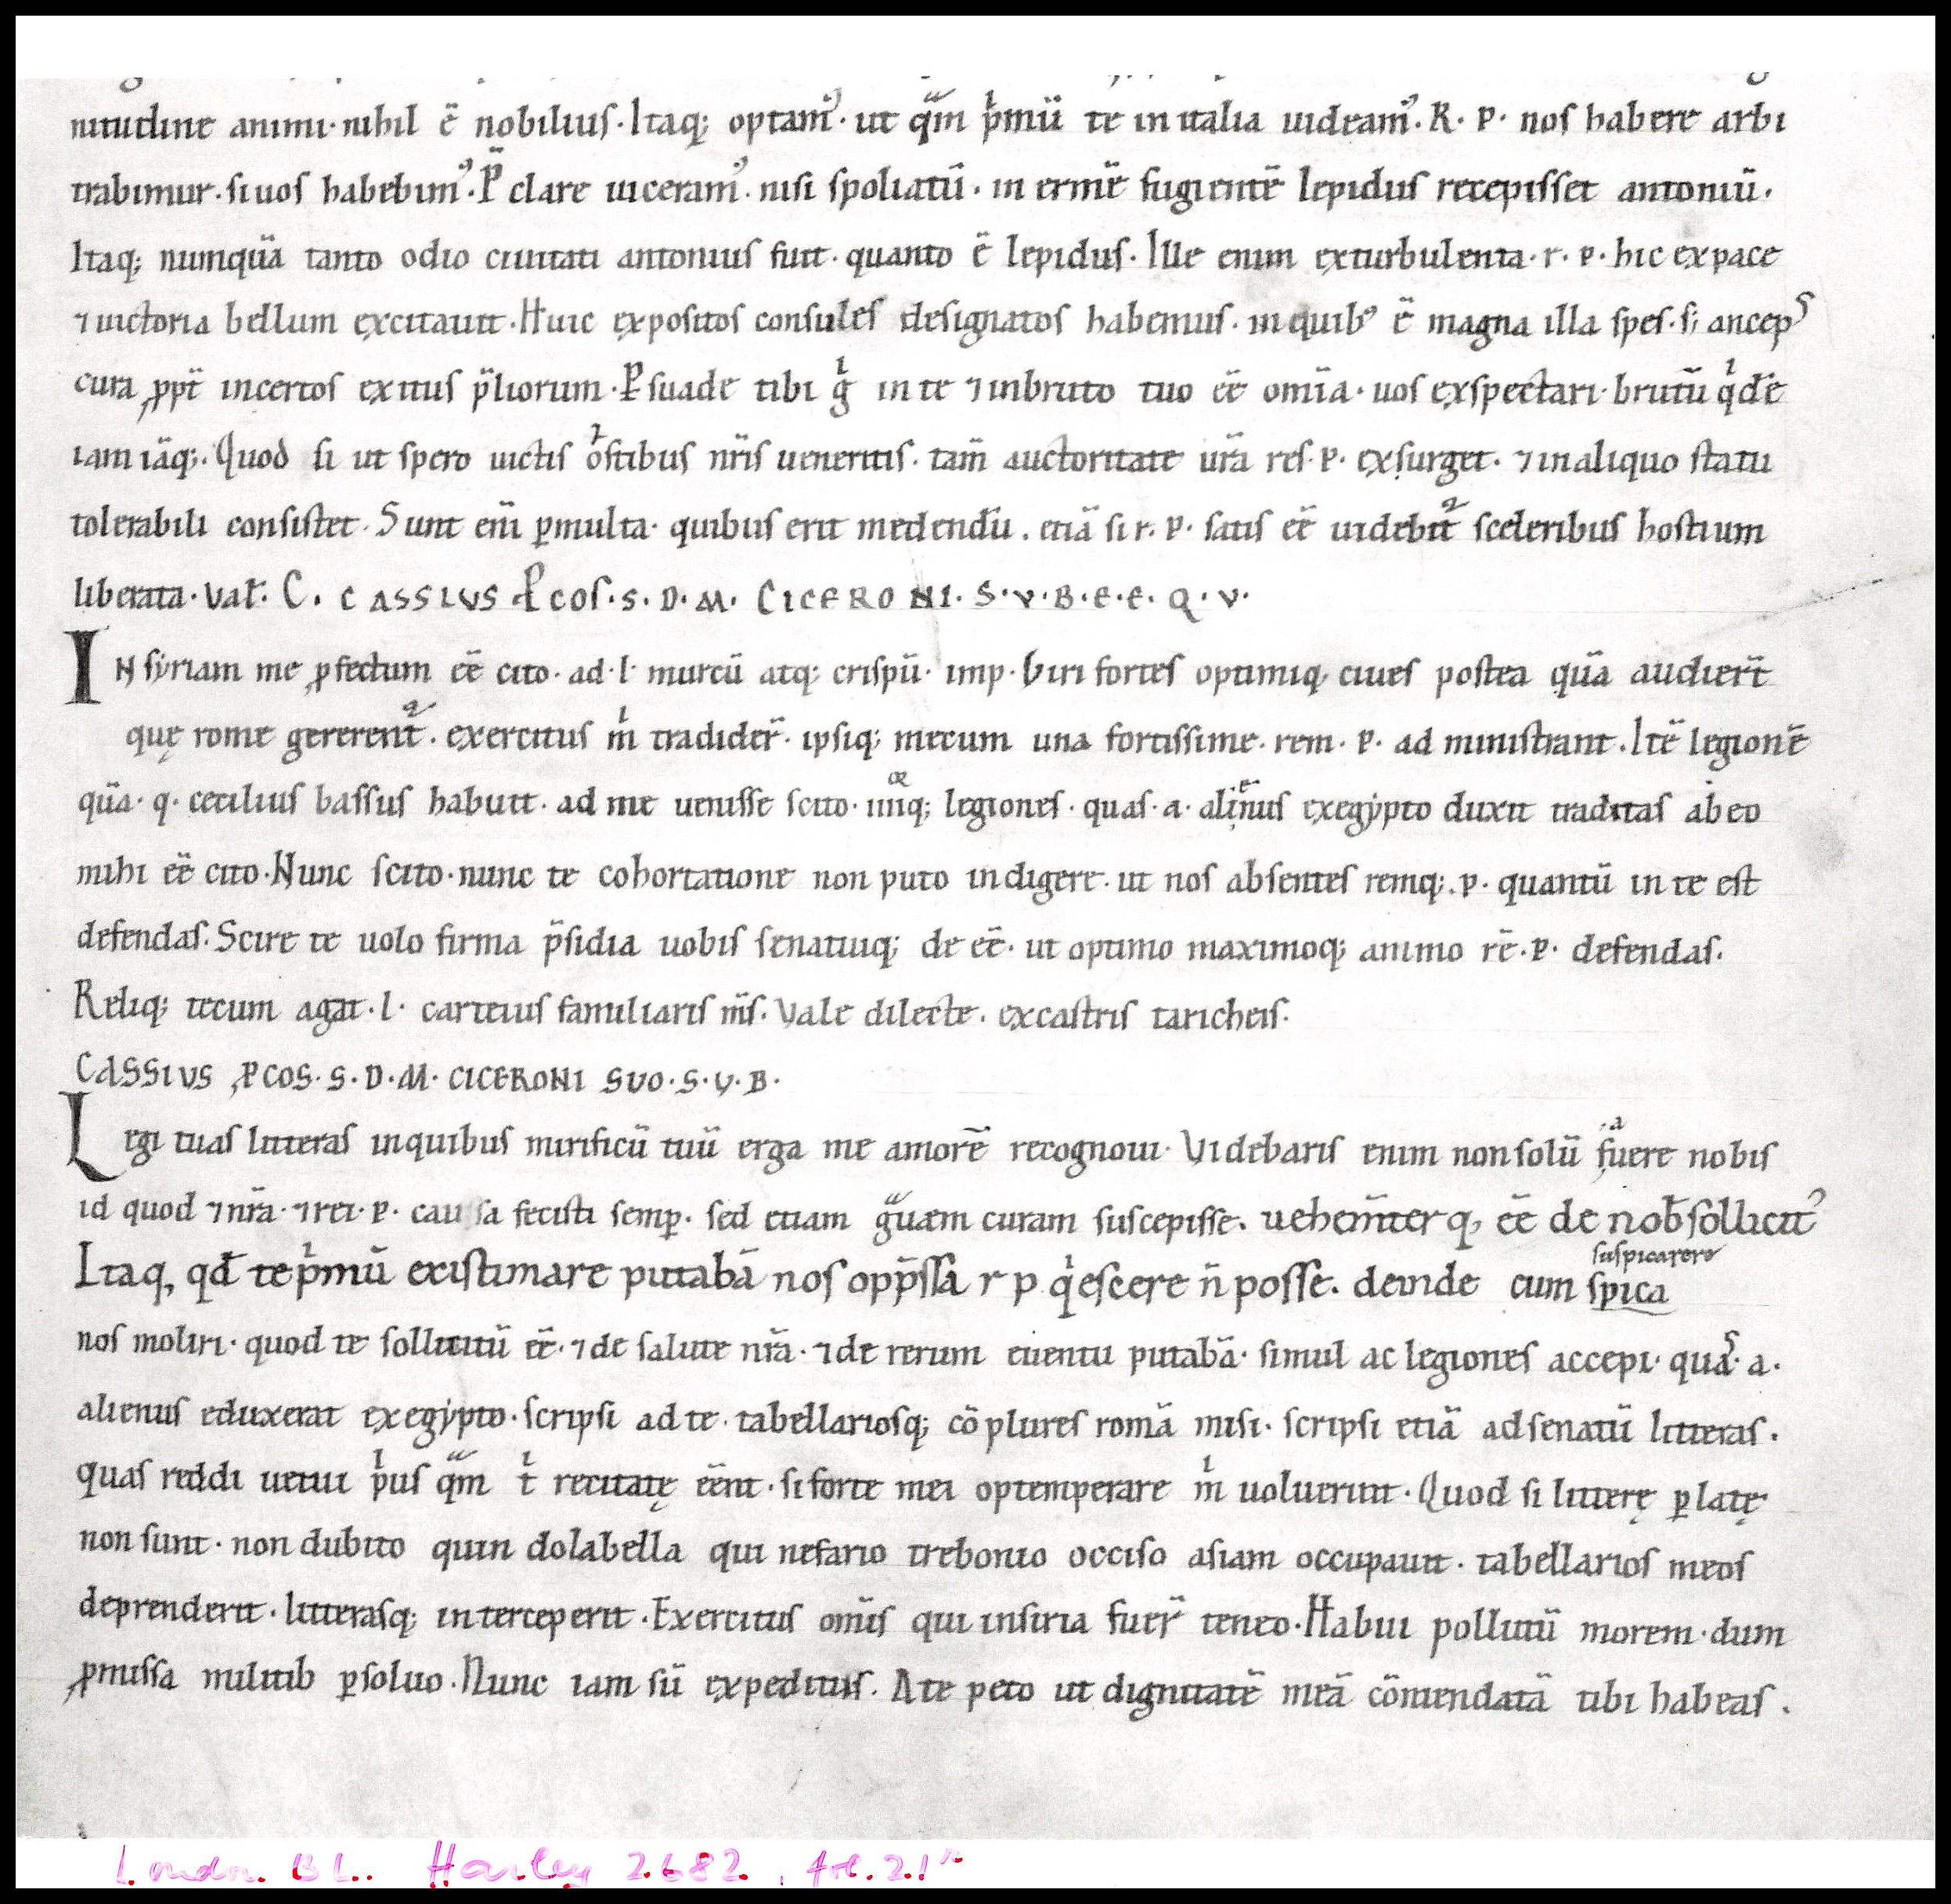 nitudine animi · nihil ē nobilius · Itaq; optam᾽ · ut qᵃm pⁱmū te in italia uideam᾽ · R · P · nos habere arbi
trabimur · si uos habebim᾽ · P̄ clare uiceram᾽ · nisi spoliatū · in ermē fugientē lepidus recepisset antoniū ·
Itaq; numquā tanto odio ciuitati antonius fuit · quanto ē lepidus · Ille enim exturbulenta · r · p · hic expace
⁊ uictoria bellum excitauit · Huic expositos consules designatos habemus · in quib᾽ ē magna illa spes · s; ancepˢ
cura ꝓpt̄ incertos exitus p̄liorum · Ꝑsuade tibi gⁱ in te ⁊ inbruto tuo eē om̄ia · uos exspectari · brutū qⁱdē
iam iāq; · Quod si ut spero uictis ostibus nr̄is ueneritis · tam̄ auctoritate ur̄a res · p · exsurget · ⁊ inaliquo statu
tolerabili consistet · Sunt eni̅ ꝑmulta · quibus erit medendū · etiā si r · p · satis eē uidebit᷑ sceleribus hostium
liberata · Val̄ · C · CASSIUS Ꝓcos · S · D · M · CICERONI · S · V · B · E · E · Q · V ·
IN syriam me ꝓfectum eē cito · ad · l · murcū atq; crispū · imp · Viri fortes optimiq; ciues postea quā audier̄t
quę rome gererent᷑ · exercitus mⁱ tradider̄ · ipsiq; mecum una fortissime · rem · p · ad ministrant · Itē legionē
quā · q · cecilius bassus habuit · ad me uenisse scito · iiiiq; legiones · quas · a · alin̄us exegypto duxit traditas ab eo
mihi eē cito · Nunc scito · nunc te cohortatione non puto indigere · ut nos absentes remq; · p · quantū in te est
defendas · Scire te uolo firma p̄sidia uobis senatuiq; de eē · ut optimo maximoq; animo rē · p · defendas ·
Reliq; tecum agat · l · carteius familiaris m̄s · Vale dilecte · excastris taricheis ·
CASSIVS ꝒCOS · S · D · M · CICERONI SVO · S · V · B ·
Legi tuas litteras inquibus mirificū tuū erga me amorē recognoui · Videbaris enim nonsolū fuere nobis
id quod ⁊ nr̄a · ⁊ rei · p · caussa fecisti semꝑ · sed etiam gᵃuem curam suscepisse · uehem̄terq; eē de nob̄ sollicit᾽
Itaq; qđ te pⁱmū existimare putabā nos opp̄ssa r p qⁱescere n̄ posse · deinde cum spica
suspicarere
nos moliri · quod te sollicitū eē · ⁊ de salute nr̄a · ⁊ de rerum euentu putabā · simul ac legiones accepi · quaˢ · a ·
alienus eduxerat exegypto · scripsi ad te · tabellariosq; cō plures romā misi · scripsi etiā adsenatū litteras ·
quas reddi uetui pⁱus qᵃm tⁱ recitatę eēnt · si forte mei optemperare mⁱ uoluerint · Quod si litterę ꝑlatę
non sunt · non dubito quin dolabella qui nefario trebonio occiso asiam occupauit · tabellarios meos
deprenderit · litterasq; interceperit · Exercitus om̄is qui insiria fuer̄ teneo · Habui pollutū morem · dum
ꝓmissa militib ꝑsoluo · Nunc iam sū expeditus · A te peto ut dignitatē meā cōmendatā tibi habeas ·
London BL. Harley 2682, fol. 21ʳ